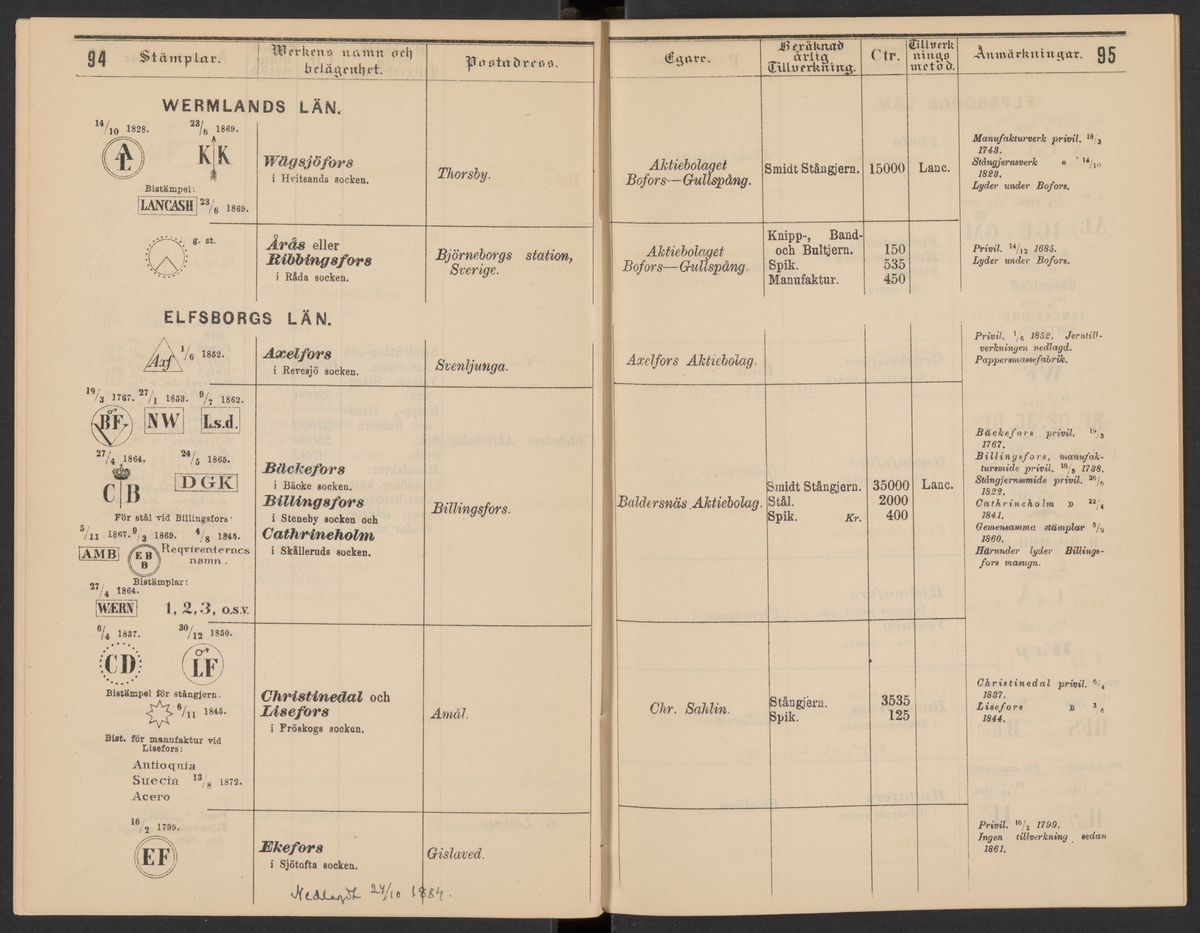 94
Stämplar.
Werkens namn och
belägenhet.
Postadress.
Egare.
Beräknad
årlig
Tillverkning.
Ctr.
Tillverk
nings
metod.
Anmärkningar.
95
WERMLANDS LÄN.
14/10 1828.
23/6 1869.
AL
K K
Bistämpel:
LANCASH 23/6 1869.
Wägsjöfors
i Hvitsands socken.
Thorsby.
Aktiebolaget
Bofors—Gullspång.
Smidt Stångjern.
15000
Lanc.
Manufakturverk privil. 18/3
1743.
Stångjernsverk » 14/10
1828.
Lyder under Bofors.
g. st.
Årås eller
Ribbingsfors
i Råda socken.
Björneborgs station,
Sverige.
Aktiebolaget
Bofors—Gullspång.
Knipp-, Band-
och Bultjern. 150
Spik. 535
Manufaktur. 450
Privil. 14/12 1685.
Lyder under Bofors.
ELFSBORGS LÄN.
Axf 1/6 1852.
Axelfors
i Revesjö socken.
Svenljunga.
Axelfors Aktiebolag.
Privil. 1/6 1852. Jerntill-
verkningen nedlagd.
Pappersmassefabrik.
19/3 1767. 27/1 1853. 9/7 1862.
BF NW L.s.d.
27/4 1864. 24/5 1865.
C B DGK
För stål vid Billingsfors:
5/11 1867. 9/3 1869. 4/8 1845.
AMB EB B Reqvirenternes
namn.
Bistämplar:
27/4 1864.
WÆRN 1, 2, 3, o.s.v.
Bäckefors
i Bäcke socken.
Billingsfors
i Steneby socken och
Cathrineholm
i Skålleruds socken.
Billingsfors.
Baldersnäs Aktiebolag.
Smidt Stångjern. 35000 Lanc.
Stål. 2000
Spik. Kr. 400
Bäckefors privil. 19/3
1767.
Billingsfors, manufak-
tursmide privil. 18/8 1738.
Stångjernssmide privil.
1822.
Cathrineholm » 22/4
1841.
Gemensamma stämplar
1860.
Härunder lyder Billings-
fors masugn.
6/4 1837. 30/12 1850.
CD LF
Bistämpel för stångjern.
6/11 1845.
Bist. för manufaktur vid
Lisefors:
Antioquia
Suecia 13/8 1872.
Acero
Christinedal och
Lisefors
i Fröskogs socken.
Åmål.
Chr. Sahlin.
Stångjern. 3535
Spik. 125
Christinedal privil. 6/4
1837.
Lisefors »
1844.
16/2 1799.
EF
Ekefors
i Sjötofta socken.
Gislaved.
Privil. 16/2 1799.
Ingen tillverkning sedan
1861.
Nedlagdt 27/10 1884.